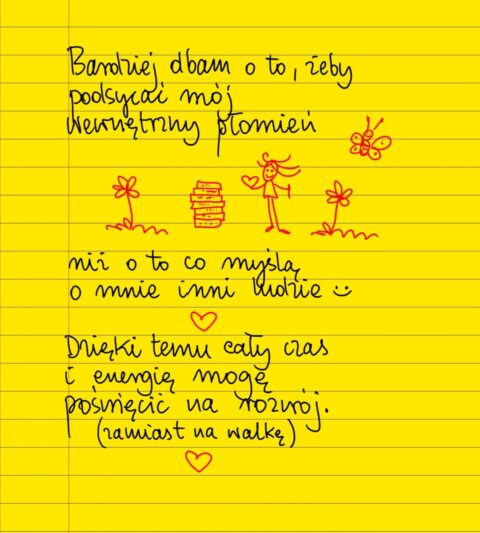 Bardziej dbam o to, żeby
podsycać mój
wewnętrzny płomień
niż o to co myślą
o mnie inni ludzie :)
Dzięki temu cały czas
i energię mogę
poświęcić na rozwój.
(zamiast na walkę)